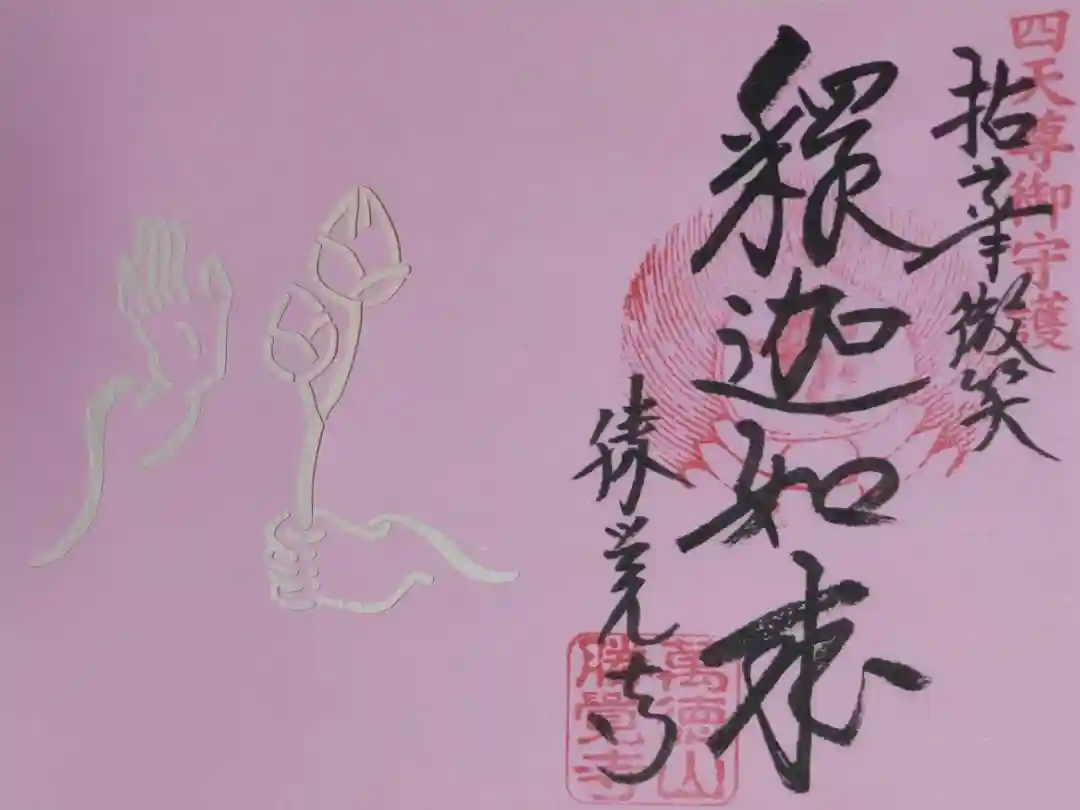 四天尊御守護
拈華微笑
釈迦如来
勝覚寺
萬徳山
勝覺寺